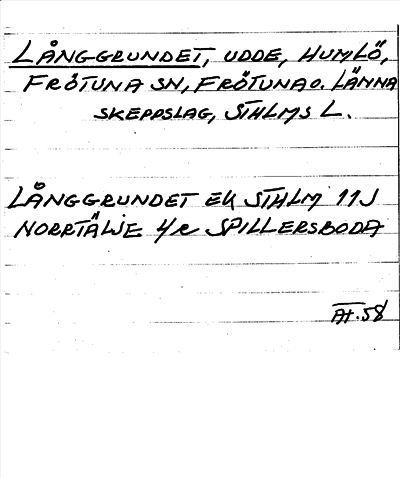 LÅNGGRUNDET, UDDE, HUMLÖ,
FRÖTUNA SN, FRÖTUNA O. LÄNNA
SKEPPSLAG, STHLMS L.
LÅNGGRUNDET EK STHLM 11J
NORRTÄLJE SPILLERSBODA
.58